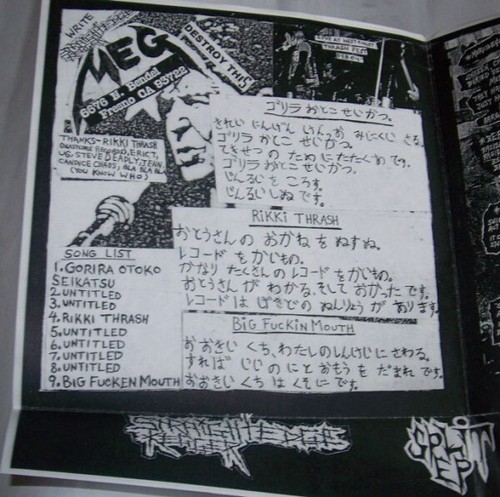 WRITE
MEG
6676 N. Bendel
Fresno CA 93722
DESTROY THIS
LIVE AT WEST COAST
THRASH FEST
THANKS-RIKKI THRASH
ERIC T,
UG, STEVE DEADLY, JENN,
CANDICE CHAOS, BLA BLA BLA
(YOU KNOW WHO)
ゴリラ おとこ せいかつ。
きれい にんげん みにくい さる。
ゴリラ おとこ せいかつ。
できせつ の ために たたくめ です。
ゴリラ おとこ せいかつ。
じんるい を ころす。
じんるい しぬ です。
RIKKI THRASH
おとうさんの おかね を ぬすぬ。
レコード を かいもの。
かなり たくさんの レコード を かいもの。
おとうさん が わかる。そして おかった です。
レコード は ぼきじの ぬんりょう が あります。
SONG LIST
1. GORIRA OTOKO
SEIKATSU
2. UNTITLED
3. UNTITLED
4. RIKKI THRASH
5. UNTITLED
6. UNTITLED
7. UNTITLED
8. UNTITLED
9. BIG FUCKEN MOUTH
BIG FUCKIN MOUTH
おおきい くち、わたしの しんけいじ に さわる。
すれば じじ の にと おもう を だまれ です。
おおきい くち は くそに です。
STRAIGHT EDGE
KEGGER
SPLIT
EP